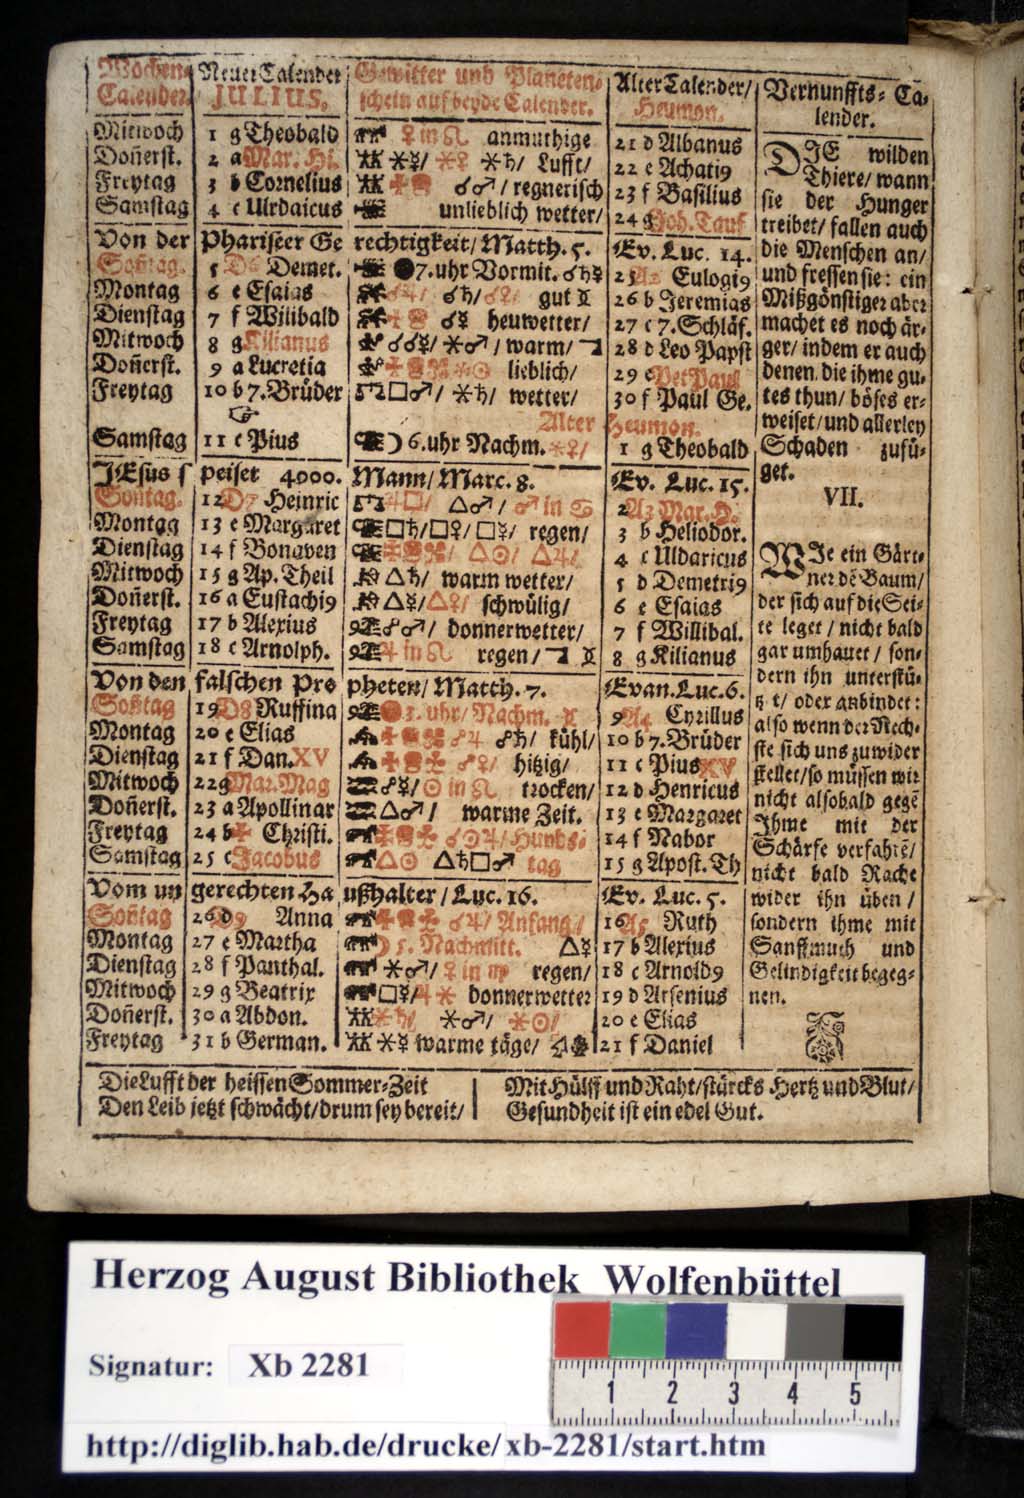 Wochen- Neuer Calender Gewitter und Planeten- Alter Calender/ Vernunffts- Ca-
Calender. JULIUS. schein auf beyde Calender. Heumon. lender.
Mittwoch 1 g Theobald ♀ in ♌ anmuthige 21 d Albanus
Don̄erst. 2 a Mar. Hi. ⚹☿/ ⚹♀ ⚹♄/ Lufft/ 22 e Achati9
Freytag 3 b Cornelius ☌♂/ regnerisch 23 f Basilius
Samstag 4 c Ulrdaicus unlieblich wetter/ 24 g Joh. Tauf
Von der Phariseer Ge rechtigkeit/ Matth. 5. Ev. Luc. 14.
Son̄tag. 5 Demet. 7. uhr Vormit. ☌♄☿ 25 Eulogi9
Montag 6 e Esaias ☌♃/ ☌♄/ ☌♀/ gut ♊ 26 b Jeremias
Dienstag 7 f Wilibald ☌☿ heuwetter/ 27 c 7. Schläf.
Mitwoch 8 g Kilianus ☌☌☿/ ⚹♂/ warm/ 28 d Leo Papst
Don̄erst. 9 a Lucretia ⚹☉ lieblich/ 29 e Pet Paul
Freytag 10 b 7. Brüder □♂/ ⚹♄/ wetter/ 30 f Paul Ge.
☞ Alter Heumon.
Samstag 11 c Pius ☽ 6. uhr Nachm. ⚹♀/ 1 g Theobald
JEsus s peiset 4000. Mann/ Marc. 8. Ev. Luc. 15.
Sontag. 12 D7 Heinric △♂/ ♂ in ♋ 2 A2 Mar. H.
Montag 13 e Margaret □♄/□♀/ □☿/ regen/ 3 b Heliodor.
Dienstag 14 f Bonaven △☉/ △♃/ 4 c Uldaricus
Mitwoch 15 g Ap. Theil △♄/ warm wetter/ 5 d Demetri9
Don̄erst. 16 a Eustachi9 △☿/△♀/ schwülig/ 6 e Esaias
Freytag 17 b Alexius ☍♂/ donnerwetter/ 7 f Willibal.
Samstag 18 c Arnolph. ♃ in ♌ regen/ ♊ 8 g Kilianus
Von den falschen Pro pheten/ Matth. 7. Evan. Luc. 6.
Son̄tag 19 D8 Ruffina 3. uhr/ Nachm. 9 A4 Cyrillus
Montag 20 e Elias ☍♃ ☍♄/ kühl/ 10 b 7. Brüder
Dienstag 21 f Dan. XV ☍♀/ hitzig/ 11 c Pius XV
Mitwoch 22 g Mar. Mag ☍☿/ ☉ in ♌ trocken/ 12 d Henricus
Don̄erst. 23 a Apollinar △♂/ warme Zeit. 13 e Margaret
Freytag 24 b Christi. ☌☉♃/ Hunds- 14 f Nabor
Samstag 25 c Jacobus △☉ △♄□♂ tag 15 g Apost. Th
Vom un gerechten Ha ußhalter/ Luc. 16. Ev. Luc. 5.
Son̄tag 26 D9 Anna ☌♃/ Anfang/ 16 A5 Ruth
Montag 27 e Martha ☽ 5. Nachmitt. △☿ 17 b Alexius
Dienstag 28 f Panthal. ⚹♂/ ♀ in ♍ regen/ 18 c Arnold9
Mitwoch 29 g Beatrix □☿/ ♃ ⚹ donnerwetter 19 d Arsenius
Don̄erst. 30 a Abdon. ⚹♄/ ⚹♂/ ⚹☉/ 20 e Elias
Freytag 31 b German. ⚹☿ warme täge/ 21 f Daniel
DIE wilden
Thiere/ wann
sie der Hunger
treibet/ fallen auch
die Menschen an/
und fressen sie: ein
Mißgönstiger aber
machet es noch är-
ger/ indem er auch
denen, die ihme gu-
tes thun/ böses er-
weiset/ und allerley
Schaden zufü-
get.
VII.
WIe ein Gärt-
ner dē Baum/
der sich auf die Sei-
te leget/ nicht bald
gar umhauet/ son-
dern ihn unterstü-
tzt/ oder anbindet:
also wenn der Nech-
ste sich uns zuwider
stellet/ so müssen wir
nicht alsobald gegē
Ihme mit der
Schärfe verfahrē/
nicht bald Rache
wider ihn üben/
sondern ihme mit
Sanfftmuth und
Gelindigkeit begeg-
nen.
Die Lufft der heissen Sommer-Zeit
Den Leib jetzt schwächt/ drum sey bereit/
Mit Hülff und Raht/ stärcks Hertz und Blut/
Gesundheit ist ein edel Gut.
Herzog August Bibliothek Wolfenbüttel
Signatur: Xb 2281
1 2 3 4 5
http://diglib.hab.de/drucke/xb-2281/start.htm